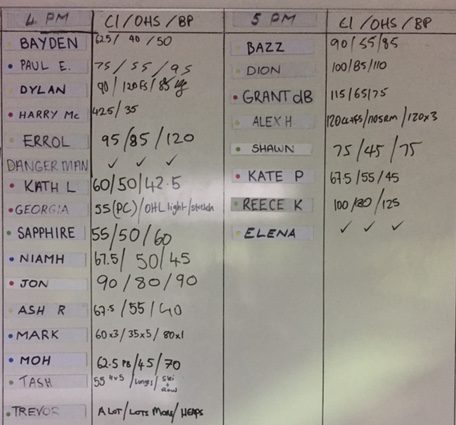 4 PM CI/OHS/BP
BAYDEN 62.5/ 40 /50
PAUL E. 75/55/95
DYLAN 90/120FS/85 kg
HARRY Mc 42.5/35
ERROL 95/85/120
DANGERMAN ✓ ✓ ✓
KATH L 60/50/42.5
GEORGIA 55(PC)/OHL light/
SAPPHIRE 55/50/60
NIAMH 67.5/50/45
JON 90/80/90
ASH R 67.5/55/40
MARK 60x3/35x5/80x1
MOH 62.5 PB/45/70
TASH 55 4x5/lunges/Ski & Row
TREVOR A LOT/LOTS MORE/HEAPS
5 PM CI/OHS/BP
BAZZ 90/55/85
DION 100/85/110
GRANT dB 115/65/75
ALEX H /120x3
SHAWN 75/45/75
KATE P 67.5/55/45
REECE K 100/80/125
ELENA ✓ ✓ ✓